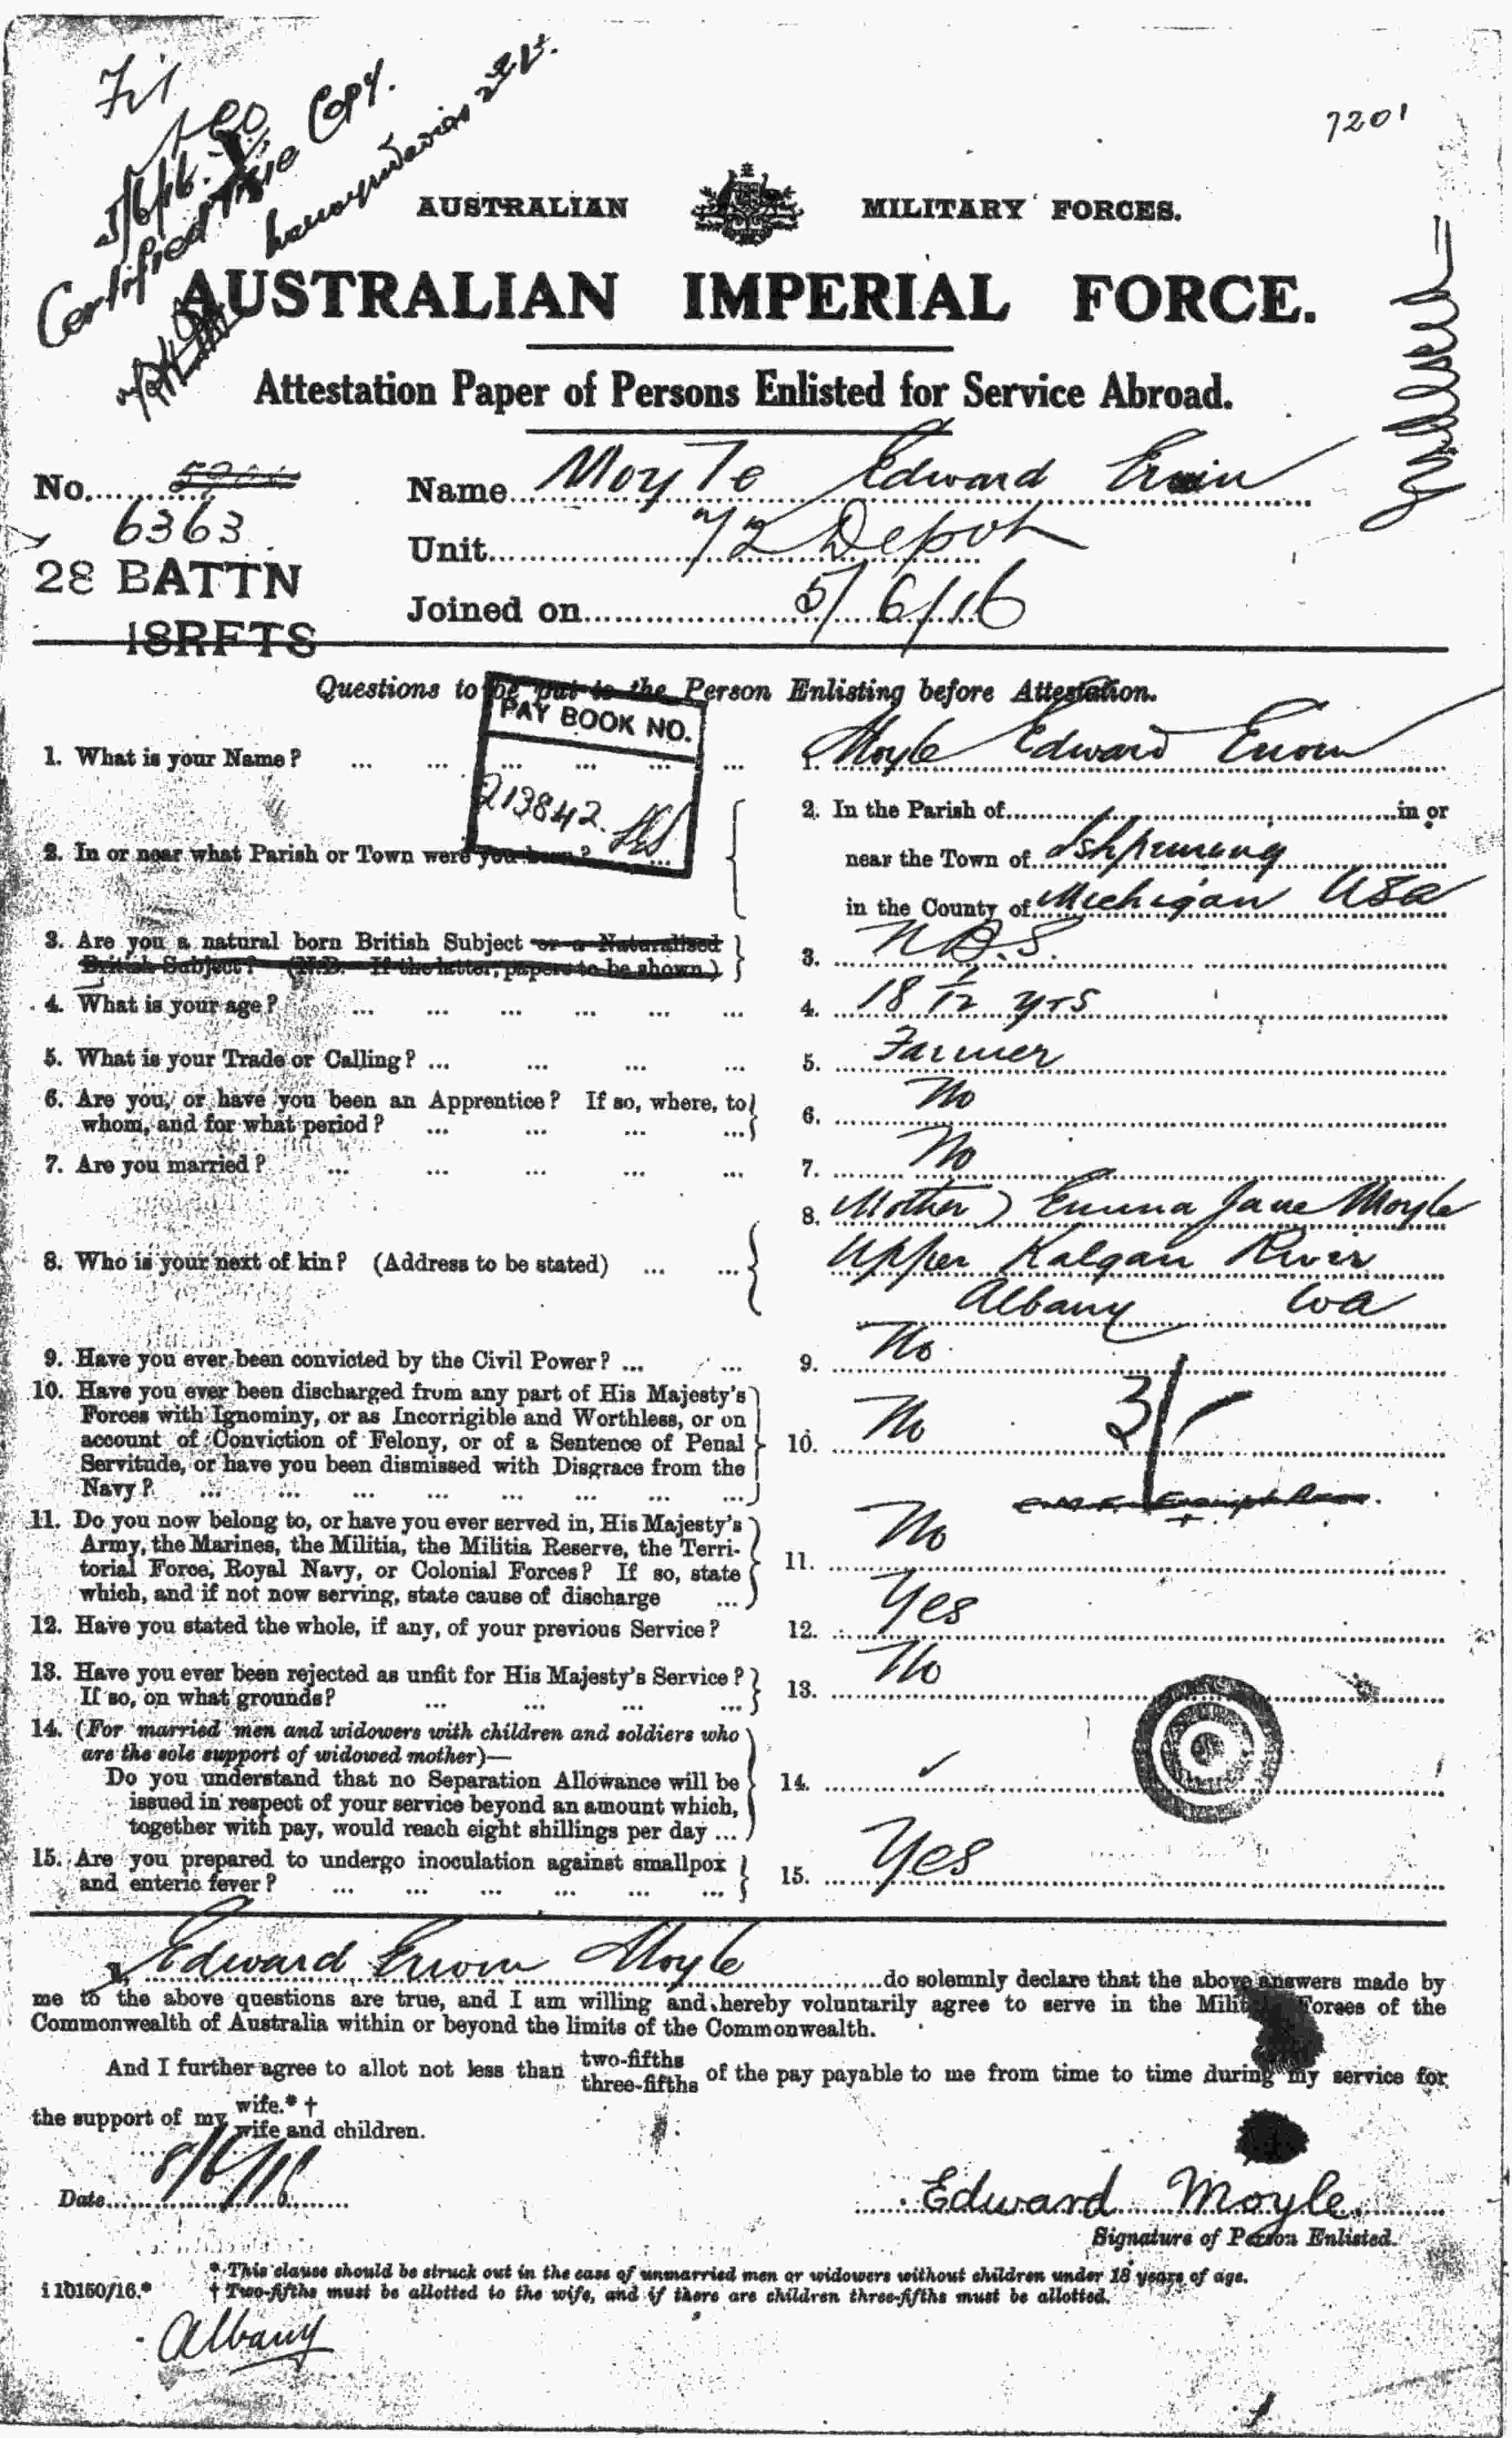 Fit
5/6/16.
Certified True Copy.
7201
AUSTRALIAN MILITARY FORCES.
AUSTRALIAN IMPERIAL FORCE.
Attestation Paper of Persons Enlisted for Service Abroad.
No.
6363
28 BATTN
18RFTS
Name Moyle Edward Erwin
Unit 72 Depot
Joined on 5/6/16
Questions to be put to the Person Enlisting before Attestation.
PAY BOOK NO.
213842.
1. What is your Name? ... ... ... ... ... ... 1. Moyle Edward Erwin
2. In or near what Parish or Town were you born? ... 2. In the Parish of in or
near the Town of Ishpeming
in the County of Michigan USA
3. Are you a natural born British Subject or a Naturalised
British Subject? (N.B.—If the latter, papers to be shown.) 3. NBS.
4. What is your age? ... ... ... ... ... ... 4. 18 1/12 yrs
5. What is your Trade or Calling? ... ... ... ... 5. Farmer
6. Are you, or have you been an Apprentice? If so, where, to
whom, and for what period? ... ... ... ... 6. No
7. Are you married? ... ... ... ... ... 7. No
8. Who is your next of kin? (Address to be stated) ... ... 8. Mother) Emma Jane Moyle
Upper Kalgan River
Albany WA
9. Have you ever been convicted by the Civil Power? ... ... 9. No
10. Have you ever been discharged from any part of His Majesty's
Forces with Ignominy, or as Incorrigible and Worthless, or on
account of Conviction of Felony, or of a Sentence of Penal
Servitude, or have you been dismissed with Disgrace from the
Navy? ... ... ... ... ... ... ... ... 10. No
3/-
11. Do you now belong to, or have you ever served in, His Majesty's
Army, the Marines, the Militia, the Militia Reserve, the Terri-
torial Force, Royal Navy, or Colonial Forces? If so, state
which, and if not now serving, state cause of discharge ... 11. No
12. Have you stated the whole, if any, of your previous Service? 12. Yes
13. Have you ever been rejected as unfit for His Majesty's Service?
If so, on what grounds? ... ... ... ... 13. No
14. (For married men and widowers with children and soldiers who
are the sole support of widowed mother)—
Do you understand that no Separation Allowance will be
issued in respect of your service beyond an amount which,
together with pay, would reach eight shillings per day ... 14. ✓
15. Are you prepared to undergo inoculation against smallpox
and enteric fever? ... ... ... ... ... ... 15. Yes
I, Edward Erwin Moyle do solemnly declare that the above answers made by
me to the above questions are true, and I am willing and hereby voluntarily agree to serve in the Military Forces of the
Commonwealth of Australia within or beyond the limits of the Commonwealth.
And I further agree to allot not less than two-fifths three-fifths of the pay payable to me from time to time during my service for
the support of my wife.* † wife and children.
Date 8/6/16
Edward Moyle.
Signature of Person Enlisted.
* This clause should be struck out in the case of unmarried men or widowers without children under 18 years of age.
i 10150/16.* † Two-fifths must be allotted to the wife, and if there are children three-fifths must be allotted.
Albany